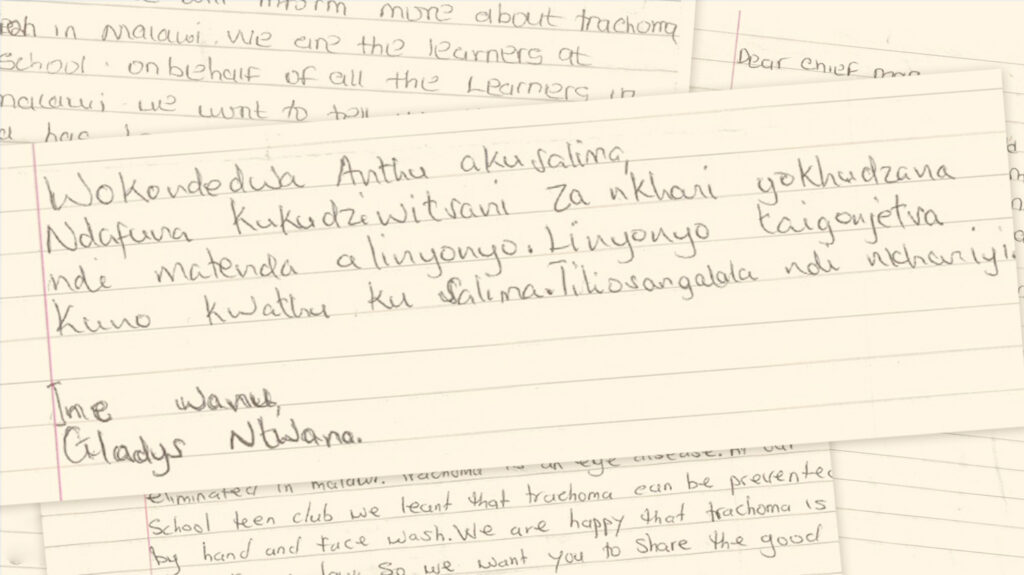 inform more about trachoma
in Malawi. We are the learners at
School. on behalf of all the Learners in
malawi we want to tell
Dear chief
Wokondedwa Anthu akusalima,
Ndafuna kukudziwitsani za nkhari yokhudzana
ndi matenda alinyonyo. Linyonyo taigonjetsa
kuno kwathu ku Salima. Tiliosangalala ndi nkhariyi.
Ine wanu,
Gladys Ntwana.
eliminated in malawi. Trachoma is an eye disease. In our
School teen club we leant that trachoma can be prevented
by hand and face wash. We are happy that trachoma is
So we want you to share the good